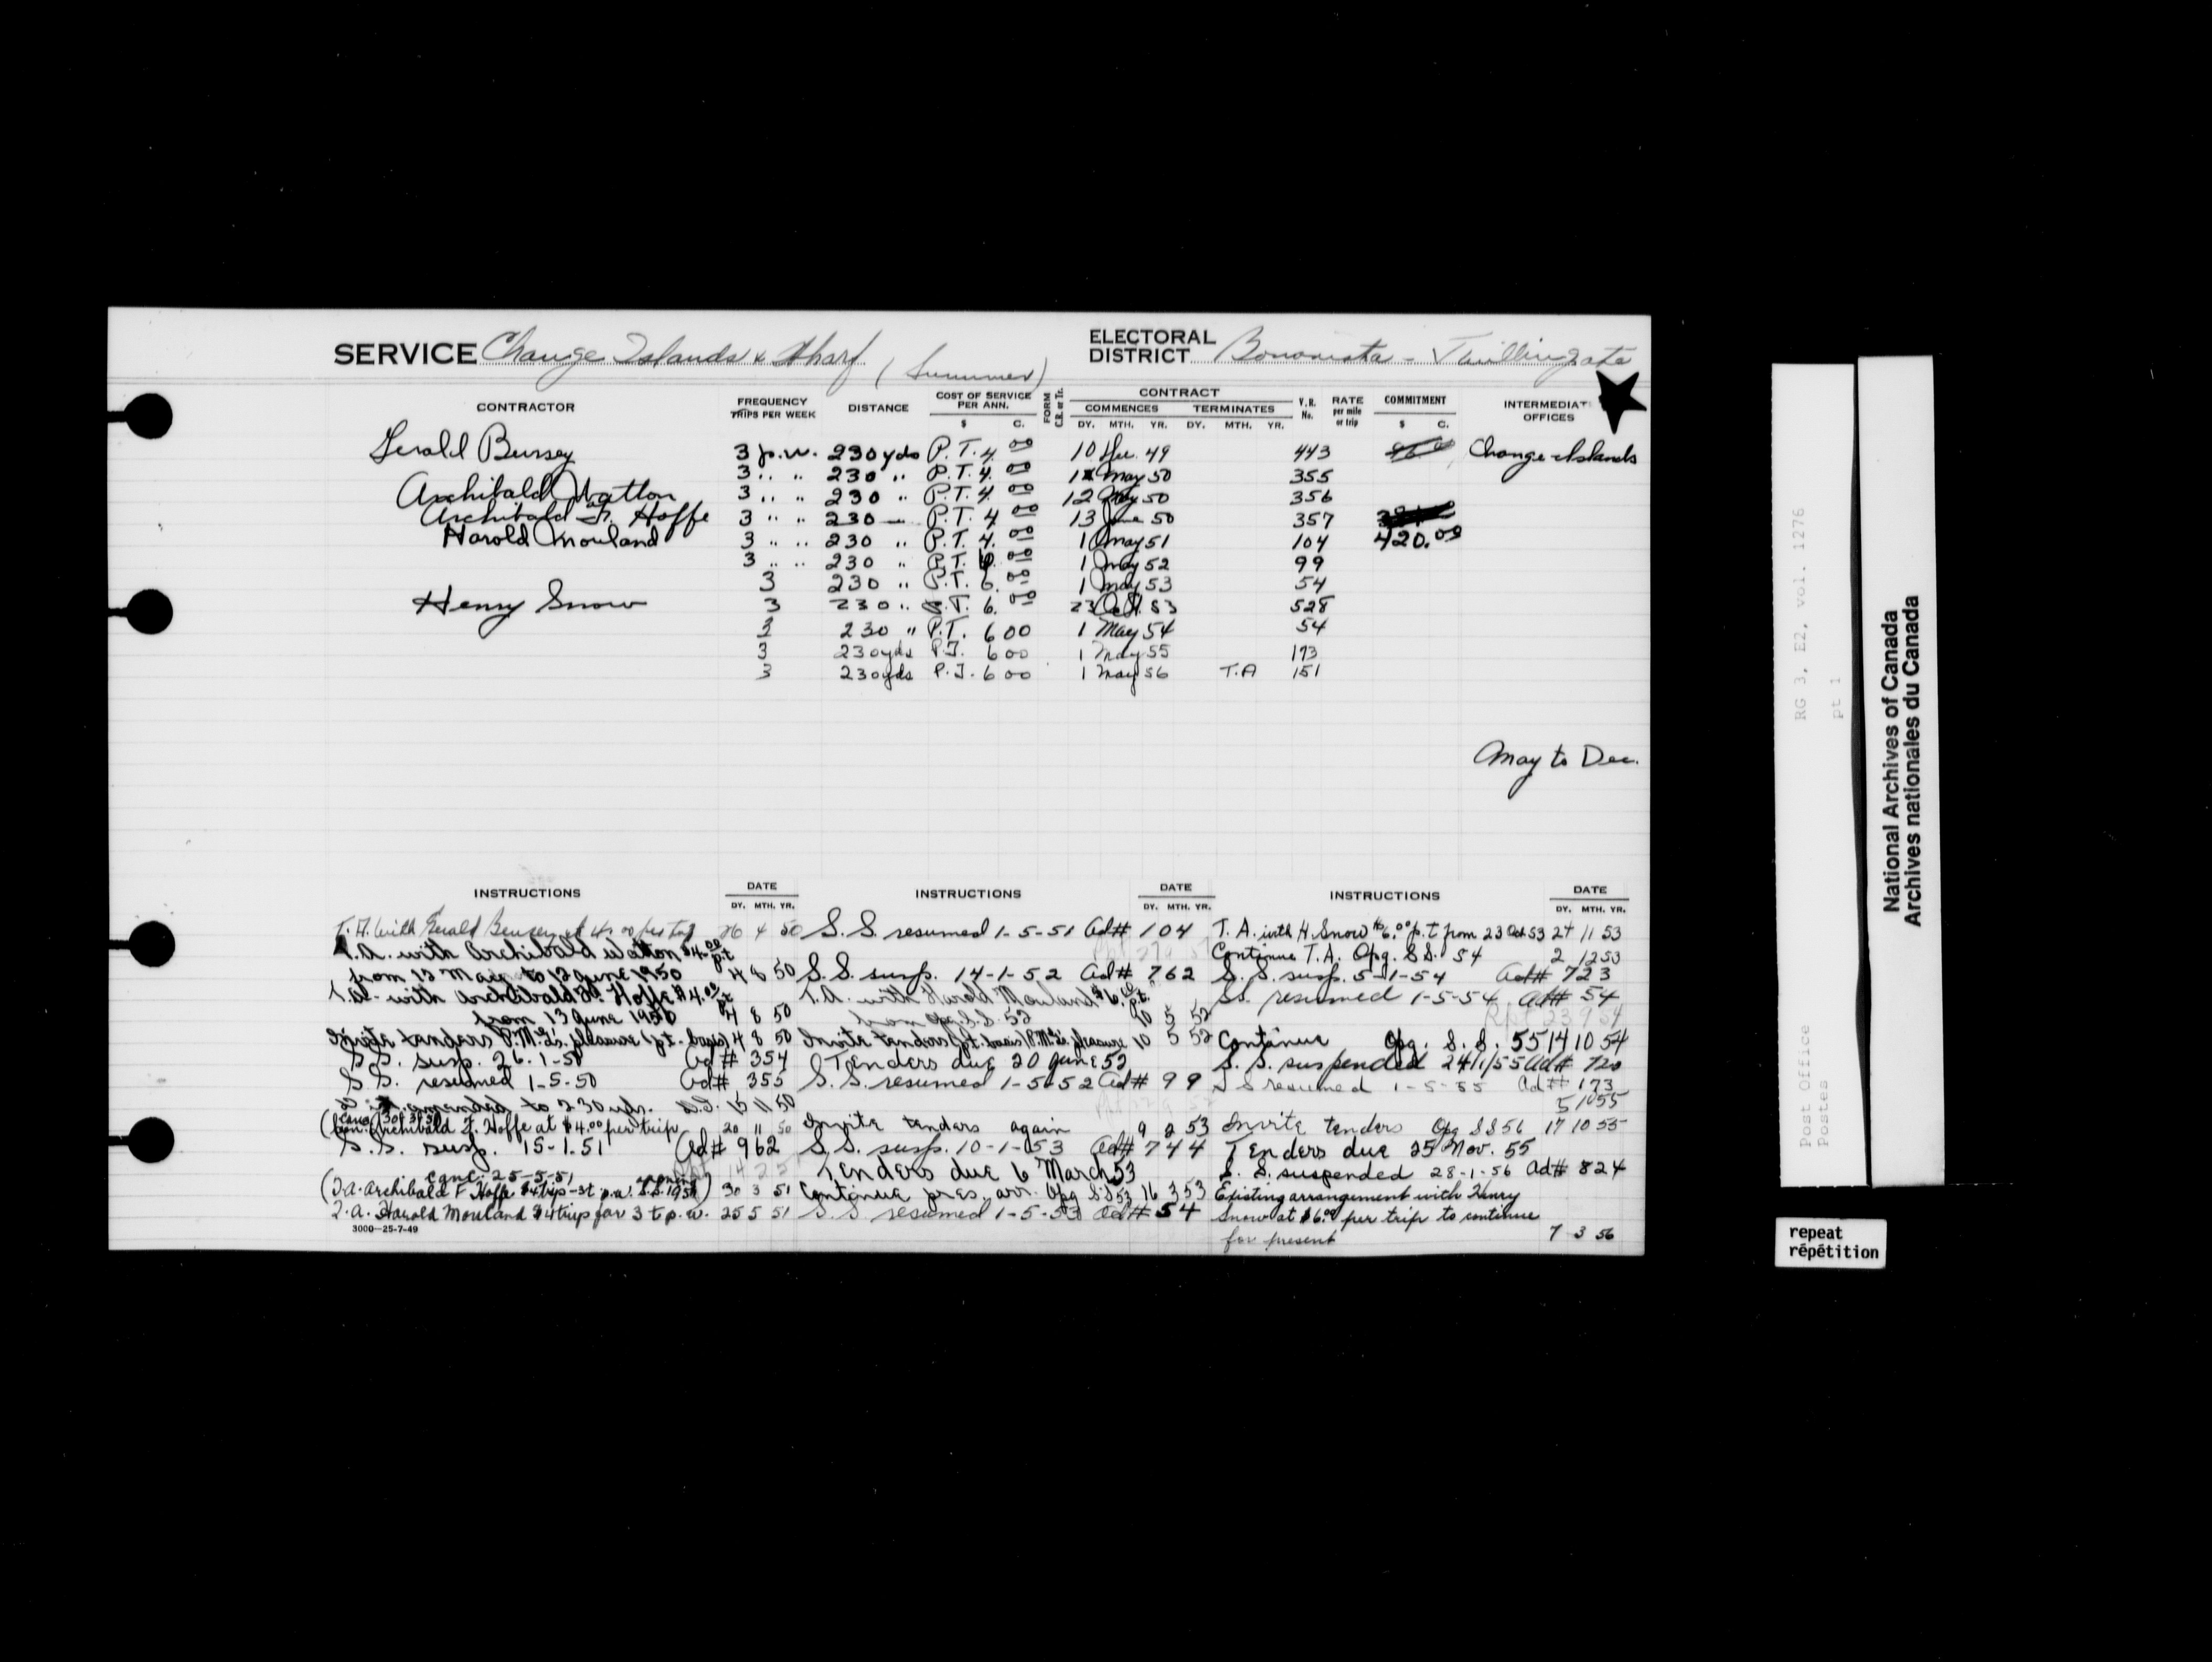 SERVICE Change Islands & Wharf (Summer)
ELECTORAL DISTRICT Bonavista - Twillingate
CONTRACTOR FREQUENCY TRIPS PER WEEK DISTANCE COST OF SERVICE PER ANN. $ C. FORM C.R. or Tr. CONTRACT COMMENCES DY. MTH. YR. TERMINATES DY. MTH. YR. V.R. No. RATE per mile or trip COMMITMENT $ C. INTERMEDIATE OFFICES
Gerald Bursey 3 p.w. 230 yds P.T. 4.00 10 Dec. 49 443 Change Islands
3 " " 230 " P.T. 4.00 1 May 50 355
Archibald Watton 3 " " 230 " P.T. 4.00 12 May 50 356
Archibald F. Hoffe 3 " " 230 " P.T. 4.00 13 June 50 357
Harold Mouland 3 " " 230 " P.T. 4.00 1 May 51 104 420.00
3 " " 230 " P.T. 6.00 1 May 52 99
3 230 " P.T. 6.00 1 May 53 54
Henry Snow 3 230 " P.T. 6.00 23 Oct. 53 528
3 230 " P.T. 6 00 1 May 54 54
3 230yds P.T. 6 00 1 May 55 173
3 230yds P.T. 6 00 1 May 56 T.A 151
May to Dec.
INSTRUCTIONS DATE DY. MTH. YR.
T.A. with Gerald Bursey at 4.00 per trip 26 4 50
T.A. with Archibald Watton $4.00 p.t
from 12 May to 12 June 1950 4 8 50
T.A. with Archibald F. Hoffe $4.00 p.t
from 13 June 1950 4 8 50
Invite tenders P.M.G's. pleasure (p.t. basis) 4 8 50
S.S. susp. 26-1-50 Ad# 354
S.S. resumed 1-5-50 Ad# 355
amended to 230 yds. 15 11 50
Archibald F. Hoffe at $4.00 per trip 20 11 50
S.S. susp. 15-1-51 Ad# 962
canc. 25-5-51
(T.A. Archibald F Hoffe $4 trip-3t p.w. S.S. 1951) 30 3 51
T.A. Harold Mouland $4 trip for 3 t p.w. 25 5 51
3000-25-7-49
INSTRUCTIONS DATE DY. MTH. YR.
S.S. resumed 1-5-51 Ad# 104
S.S. susp. 14-1-52 Ad# 762
T.A. with Harold Mouland $6.00 p.t.
from Opg. S.S. 52 10 5 52
Invite tenders (p.t. basis) P.M.G's pleasure 10 5 52
Tenders due 20 June 52
S.S. resumed 1-5-52 Ad# 99
Invite tenders again 9 2 53
S.S. susp. 10-1-53 Ad# 744
Tenders due 6 March 53
Continue pres. arr. Opg S.S 53 16 3 53
S.S. resumed 1-5-53 Ad# 54
INSTRUCTIONS DATE DY. MTH. YR.
T.A. with H. Snow $6.00 p.t from 23 Oct 53 24 11 53
Continue T.A. Opg. S.S. 54 2 12 53
S.S. susp. 5-1-54 Ad# 723
S.S. resumed 1-5-54 Ad# 54
Rpt 23 9 54
Continue Opg. S.S. 55 14 10 54
S.S. suspended 24/1/55 Ad# 720
S.S resumed 1-5-55 Ad# 173
5 10 55
Invite tenders Opg S S 56 17 10 55
Tenders due 25 Nov. 55
S.S. suspended 28-1-56 Ad# 824
Existing arrangement with Henry
Snow at $6.00 per trip to continue
for present 7 3 56
RG 3, E2, vol. 1276
pt 1
Post Office
Postes
National Archives of Canada
Archives nationales du Canada
repeat
répétition